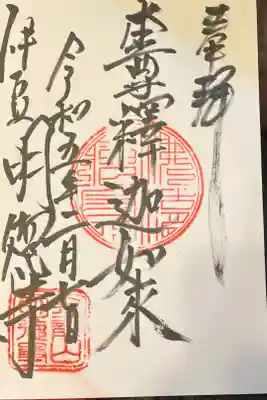 奉拝
本尊釋迦如來
令和五年二月七日
伊豆明徳寺